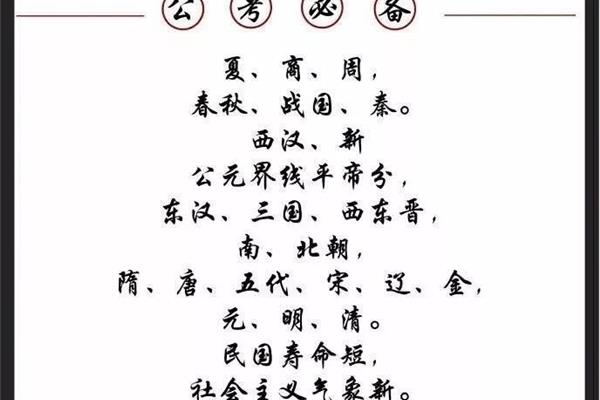 公考必备
夏、商、周,
春秋、战国、秦。
西汉、新
公元界线平帝分,
东汉、三国、西东晋,
南、北朝,
隋、唐、五代、宋、辽、金,
元、明、清。
民国寿命短,
社会主义气象新。